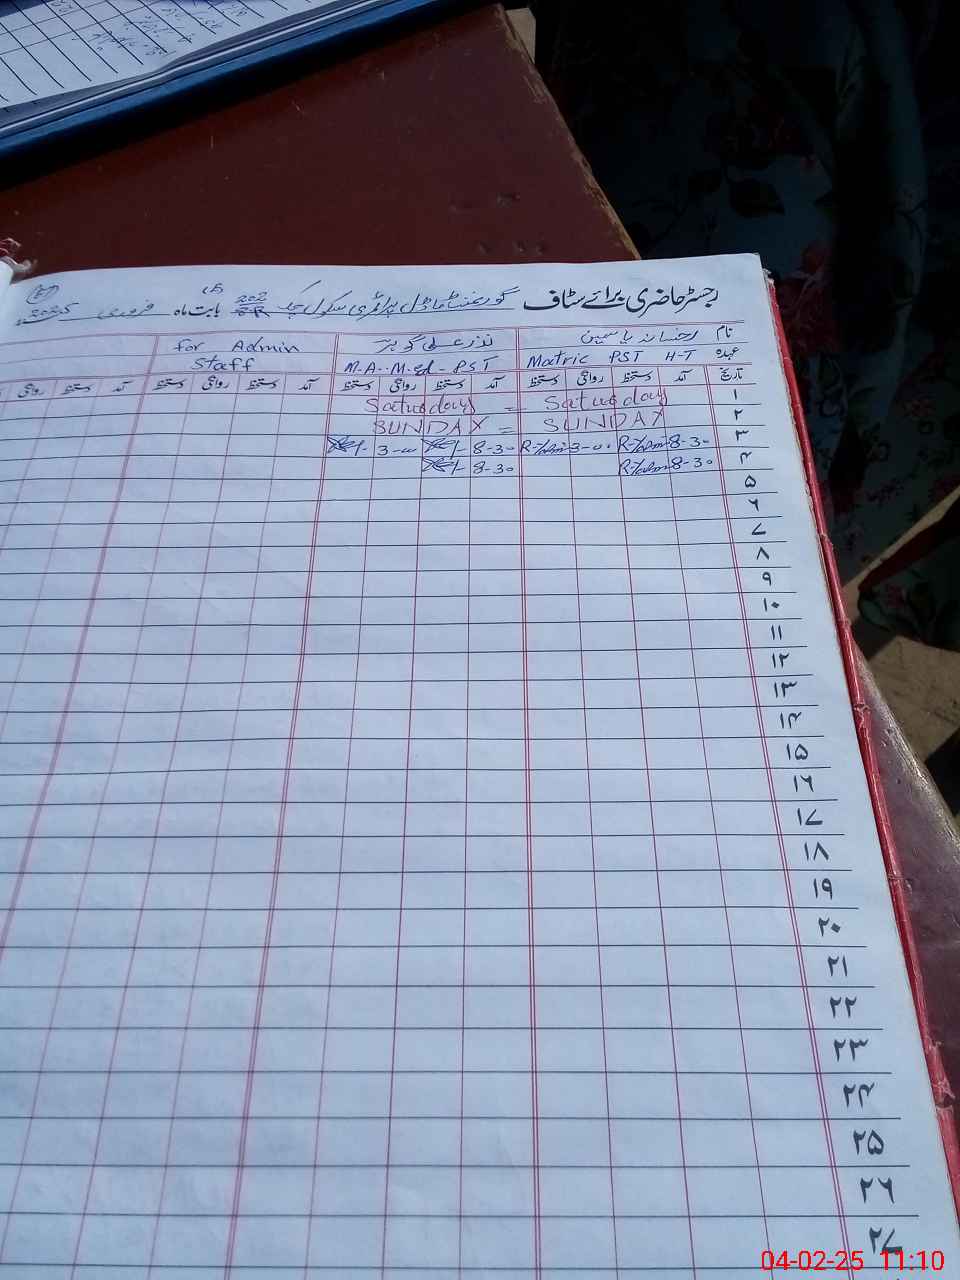 رجسٹر حاضری برائے سٹاف گورنمنٹ ماڈل پرائمری سکول چک 202 بابت ماہ فروری 2025
نام رخسانہ یاسمین نذر علی گوہر for Admin
عہدہ Matric PST H-T M.A. M.Ed - PST Staff
تاریخ آمد دستخط روانگی دستخط آمد دستخط روانگی دستخط آمد دستخط روانگی دستخط آمد دستخط روانگی
۱ Saturday = Saturday
۲ SUNDAY = SUNDAY
۳ 8-30 3-00 8-30 3-00
۴ 8-30 8-30
۵
۶
۷
۸
۹
۱۰
۱۱
۱۲
۱۳
۱۴
۱۵
۱۶
۱۷
۱۸
۱۹
۲۰
۲۱
۲۲
۲۳
۲۴
۲۵
۲۶
۲۷
04-02-25 11:10